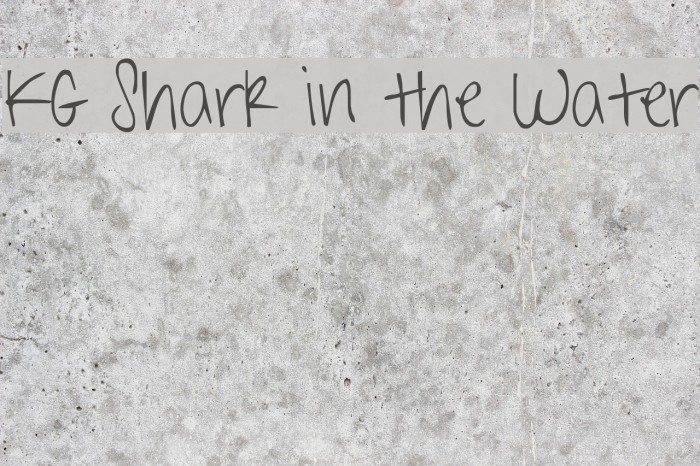 KG Shark in the Water